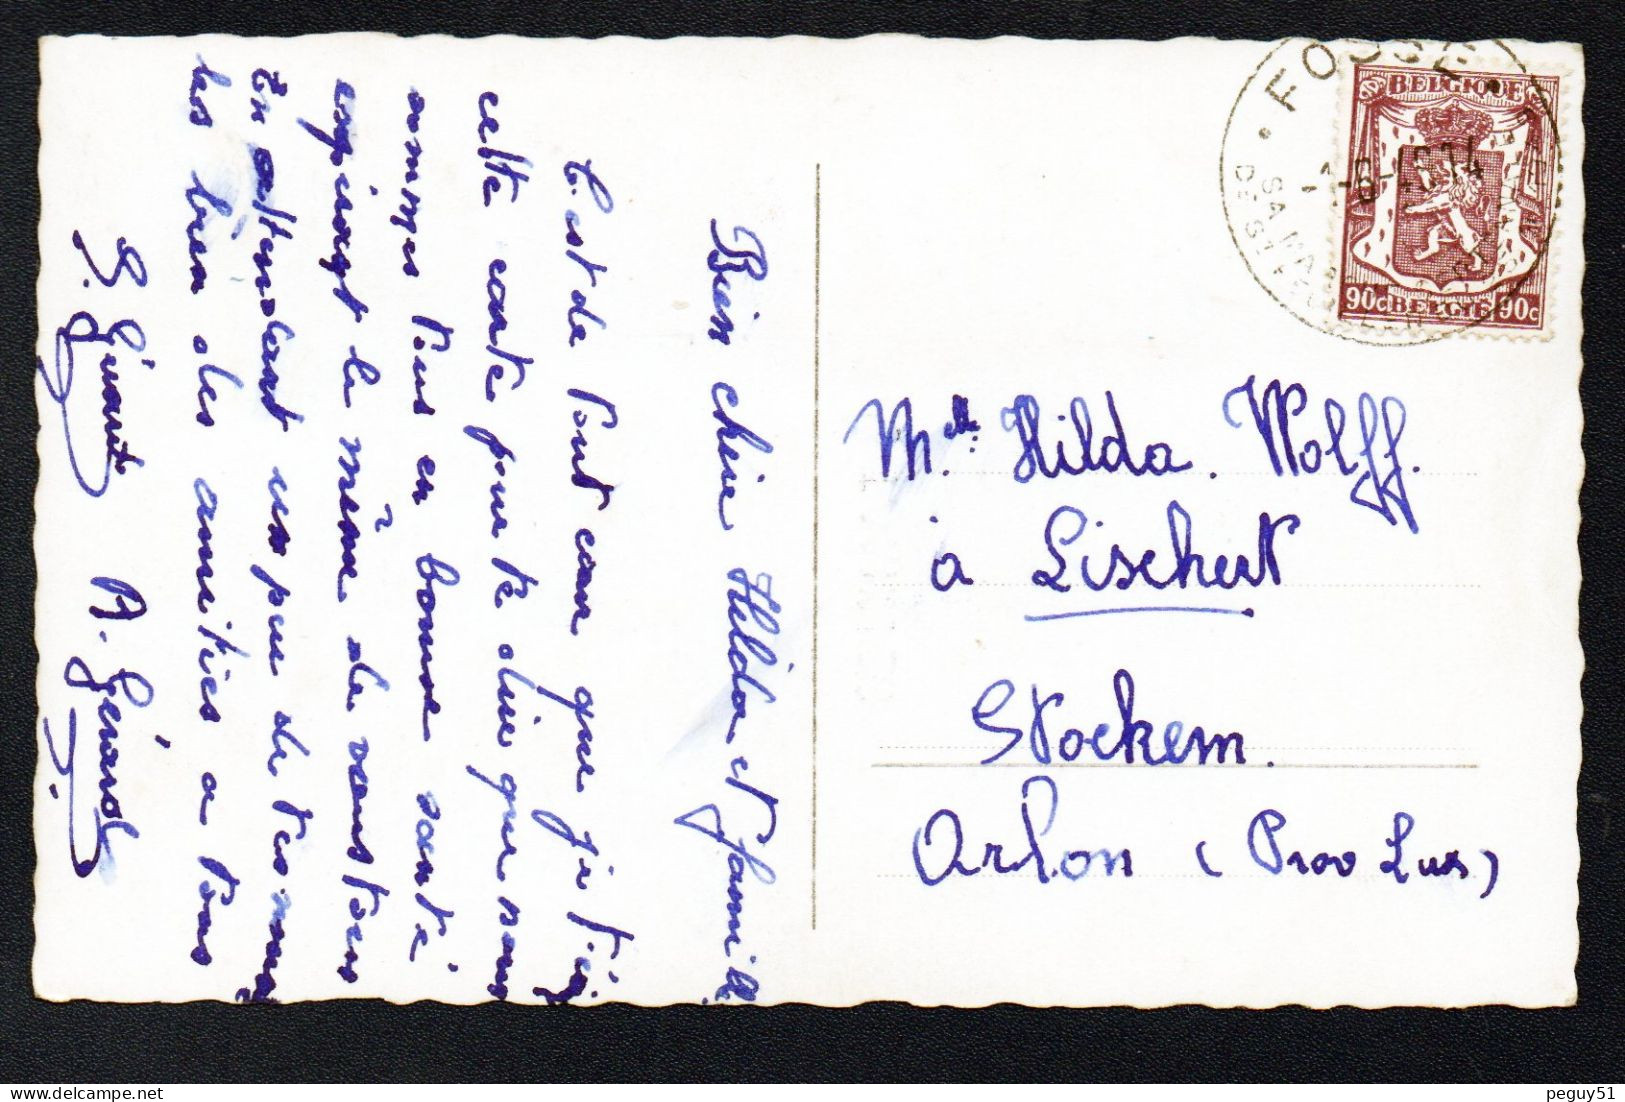 Bien chère Hilda et famille
C'est de tout cœur que je t'écris
cette carte pour te dire que nous
sommes tous en bonne santé
espérant le même de vous tous
En attendant un peu de tes nouv
les bien des amitiés a tous
G. Gérard A. Gérard
FOSSE
BELGIQUE
90c BELGIE 90c
Melle Hilda. Wolff.
à Lischert
Stockem.
Arlon (Prov Lux)
peguy51